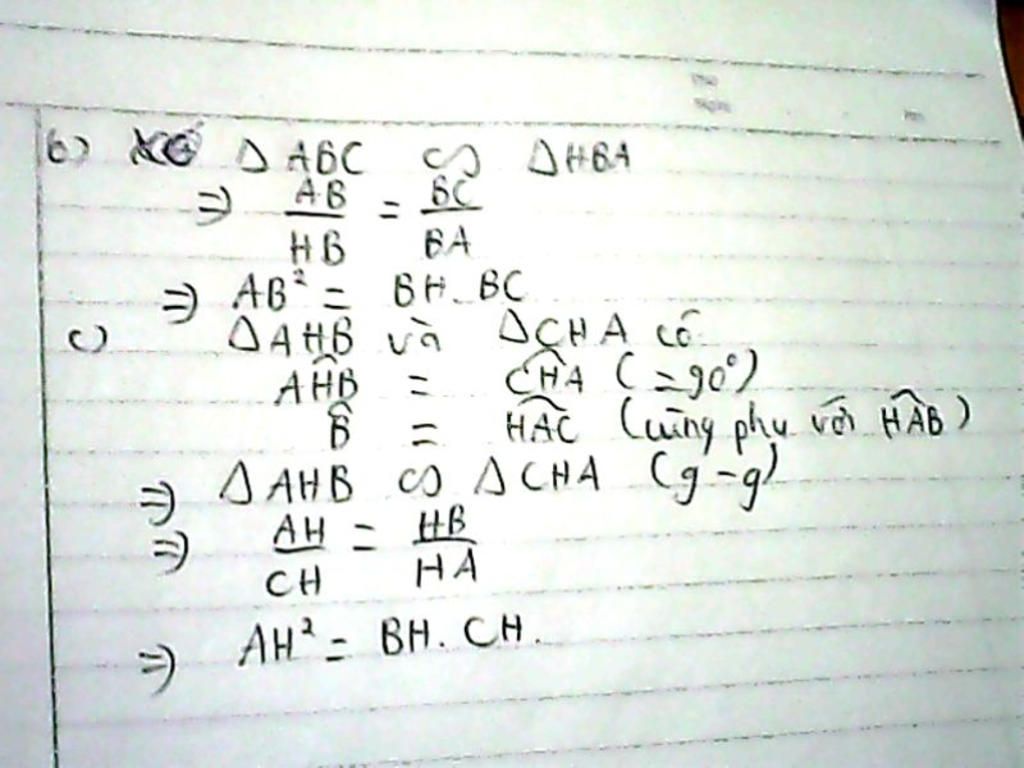 b) ΔABC ∽ ΔHBA
=> AB/HB = BC/BA
=> AB² = BH. BC
c) ΔAHB và ΔCHA có
AĤB = CĤA (=90°)
B̂ = HÂC (cùng phụ với HÂB)
=> ΔAHB ∽ ΔCHA (g-g)
=> AH/CH = HB/HA
=> AH² = BH. CH.